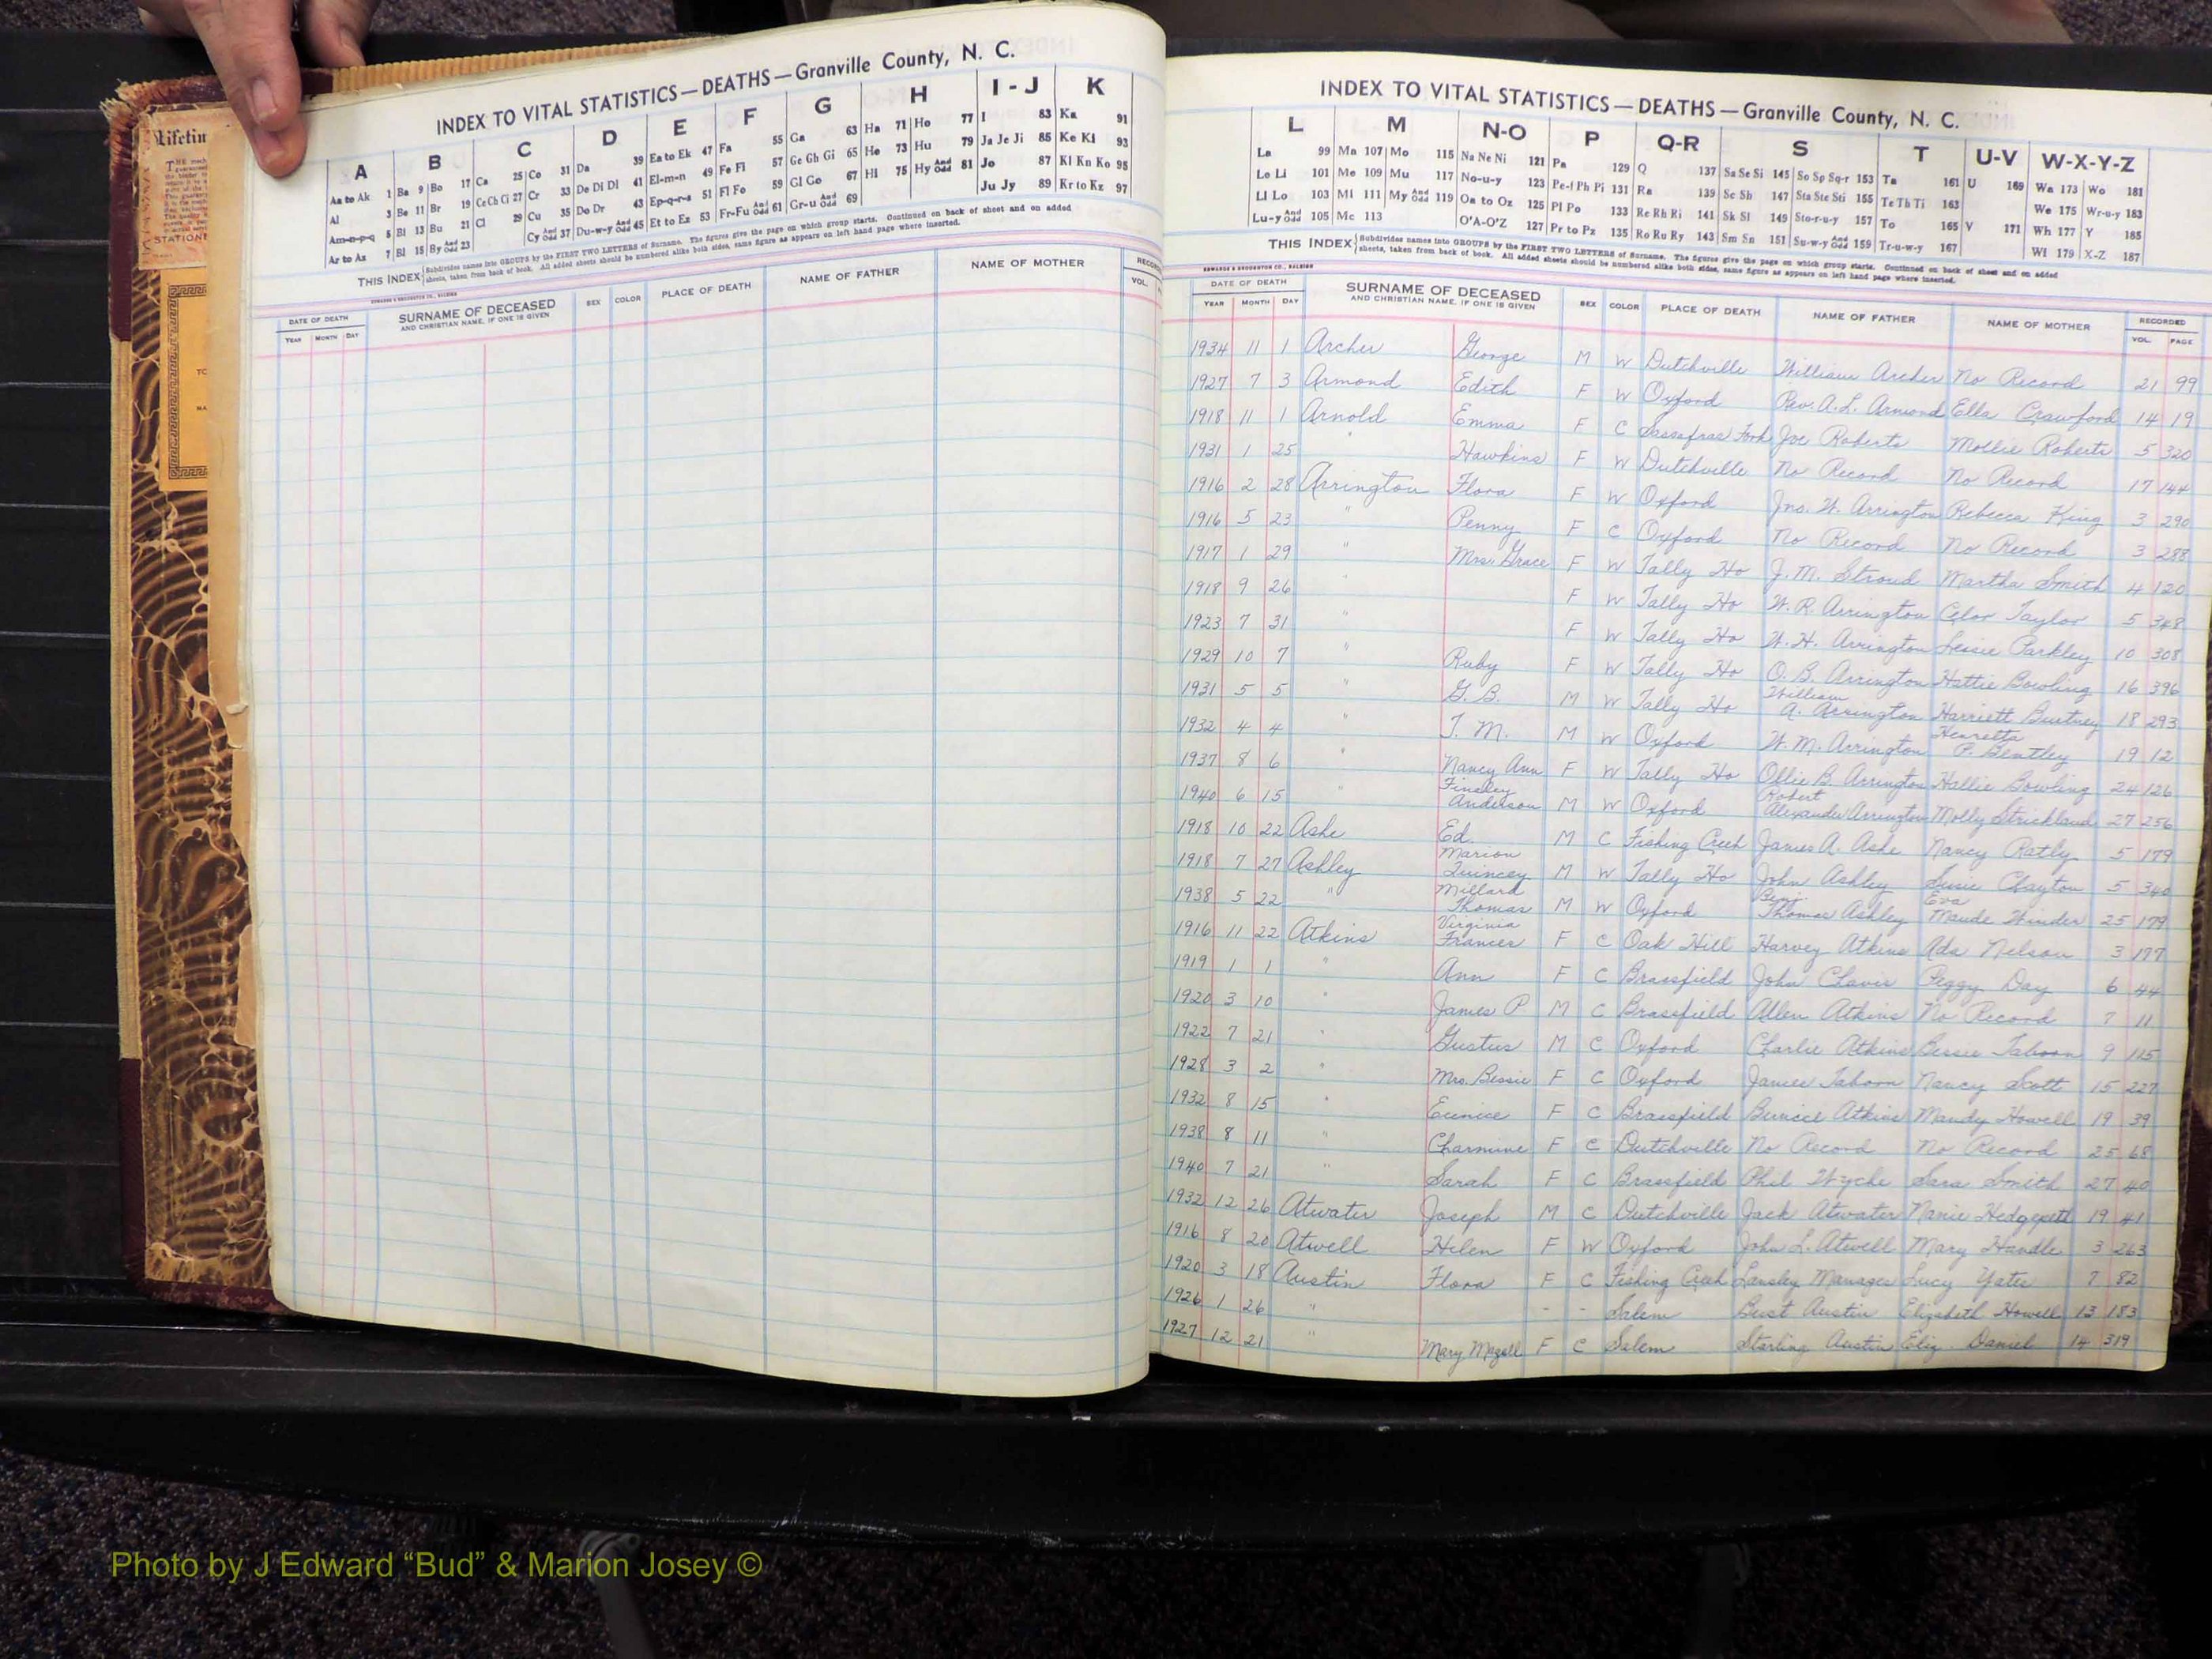 Lifetin
STATIONE
INDEX TO VITAL STATISTICS—DEATHS—Granville County, N. C.
A B C D E F G H I - J K
Aa to Ak 1 Ba 9 Bo 17 Ca 25 Co 31 Da 39 Ea to Ek 47 Fa 55 Ga 63 Ha 71 Ho 77 I 83 Ka 91
Al 3 Be 11 Br 19 Ce Ch Ci 27 Cr 33 De Di Dl 41 El-m-n 49 Fe Fi 57 Ge Gh Gi 65 He 73 Hu 79 Ja Je Ji 85 Ke Ki 93
Am-n-p-q 5 Bi 13 Bu 21 Cl 29 Cu 35 Do Dr 43 Ep-q-r-s 51 Fl Fo 59 Gl Go 67 Hi 75 Hy And Odd 81 Jo 87 Kl Kn Ko 95
Ar to Az 7 Bl 15 By And Odd 23 Cy And Odd 37 Du-w-y And Odd 45 Et to Ez 53 Fr-Fu And Odd 61 Gr-u And Odd 69 Ju Jy 89 Kr to Kz 97
THIS INDEX Subdivides names into GROUPS by the FIRST TWO LETTERS of Surname. The figures give the page on which group starts. Continued on back of sheet and on added
sheets, taken from back of book. All added sheets should be numbered alike both sides, same figure as appears on left hand page where inserted.
EDWARDS & BROUGHTON CO., RALEIGH
DATE OF DEATH SURNAME OF DECEASED SEX COLOR PLACE OF DEATH NAME OF FATHER NAME OF MOTHER
YEAR MONTH DAY AND CHRISTIAN NAME, IF ONE IS GIVEN VOL.
INDEX TO VITAL STATISTICS—DEATHS—Granville County, N. C.
L M N-O P Q-R S T U-V W-X-Y-Z
La 99 Ma 107 Mo 115 Na Ne Ni 121 Pa 129 Q 137 Sa Se Si 145 So Sp Sq-r 153 Ta 161 U 169 Wa 173 Wo 181
Le Li 101 Me 109 Mu 117 No-u-y 123 Pe-f Ph Pi 131 Ra 139 Sc Sh 147 Sta Ste Sti 155 Te Th Ti 163 We 175 Wr-u-y 183
Ll Lo 103 Mi 111 My And Odd 119 Oa to Oz 125 Pl Po 133 Re Rh Ri 141 Sk Sl 149 Sto-r-u-y 157 To 165 V 171 Wh 177 Y 185
Lu-y And Odd 105 Mc 113 O'A-O'Z 127 Pr to Pz 135 Ro Ru Ry 143 Sm Sn 151 Su-w-y And Odd 159 Tr-u-w-y 167 Wi 179 X-Z 187
THIS INDEX Subdivides names into GROUPS by the FIRST TWO LETTERS of Surname. The figures give the page on which group starts. Continued on back of sheet and on added
sheets, taken from back of book. All added sheets should be numbered alike both sides, same figure as appears on left hand page where inserted.
EDWARDS & BROUGHTON CO., RALEIGH
DATE OF DEATH SURNAME OF DECEASED SEX COLOR PLACE OF DEATH NAME OF FATHER NAME OF MOTHER RECORDED
YEAR MONTH DAY AND CHRISTIAN NAME, IF ONE IS GIVEN VOL. PAGE
1934 11 1 Archer George M W Dutchville William Archer No Record 21 99
1927 7 3 Armond Edith F W Oxford Rev. A. L. Armond Ella Crawford 14 19
1918 11 1 Arnold Emma F C Sassafras Fork Joe Roberts Mollie Roberts 5 320
1931 1 25 " Hawkins F W Dutchville No Record No Record 17 144
1916 2 28 Arrington Flora F W Oxford Jno. W. Arrington Rebecca King 3 290
1916 5 23 " Penny F C Oxford No Record No Record 3 288
1917 1 29 " Mrs. Grace F W Tally Ho J. M. Stroud Martha Smith 4 120
1918 9 26 " F W Tally Ho W. R. Arrington Celor Taylor 5 348
1923 7 31 " F W Tally Ho W. H. Arrington Lessie Parkley 10 308
1929 10 7 " Ruby F W Tally Ho O. B. Arrington Hattie Bowling 16 396
1931 5 5 " G. B. M W Tally Ho William A. Arrington Harriett 18 293
1932 4 4 " T. M. M W Oxford W. M. Arrington Henretta P. Bentley 19 12
1937 8 6 " Nancy Ann F W Tally Ho Ollie B. Arrington Hallie Bowling 24 126
1940 6 15 " Finsley Anderson M W Oxford Robert Alexander Arrington Molly Strickland 27 256
1918 10 22 Ashe Ed. M C Fishing Creek James A. Ashe Nancy Ratly 5 179
1918 7 27 Ashley Marion Quincey M W Tally Ho John Ashley Susie Clayton 5 340
1938 5 22 " Millard Thomas M W Oxford Benj. Thomas Ashley Eva Maude Winder 25 179
1916 11 22 Atkins Virginia Frances F C Oak Hill Harvey Atkins Ada Nelson 3 177
1919 1 1 " Ann F C Brassfield John Peggy Day 6 44
1920 3 10 " James P M C Brassfield Allen Atkins No Record 7 11
1922 7 21 " Gustus M C Oxford Charlie Atkins Bessie Taborn 9 115
1928 3 2 " Mrs. Bessie F C Oxford James Taborn Nancy Scott 15 227
1932 8 15 " Eunice F C Brassfield Bunice Atkins Mandy Howell 19 39
1938 8 11 " Charmine F C Dutchville No Record No Record 25 68
1940 7 21 " Sarah F C Brassfield Phil Wyche Sara Smith 27 40
1932 12 26 Atwater Joseph M C Dutchville Jack Atwater Nanie Hedgepeth 19 41
1916 8 20 Atwell Helen F W Oxford John L. Atwell Mary Handle 3 263
1920 3 18 Austin Flora F C Fishing Creek Lansley Manager Lucy Yates 7 82
1926 1 26 " - - Salem Bust Austin Elizabeth Howell 13 183
1927 12 21 " Mary Mozell F C Salem Starling Austin Eliz. Daniel 14 319
Photo by J Edward “Bud” & Marion Josey ©